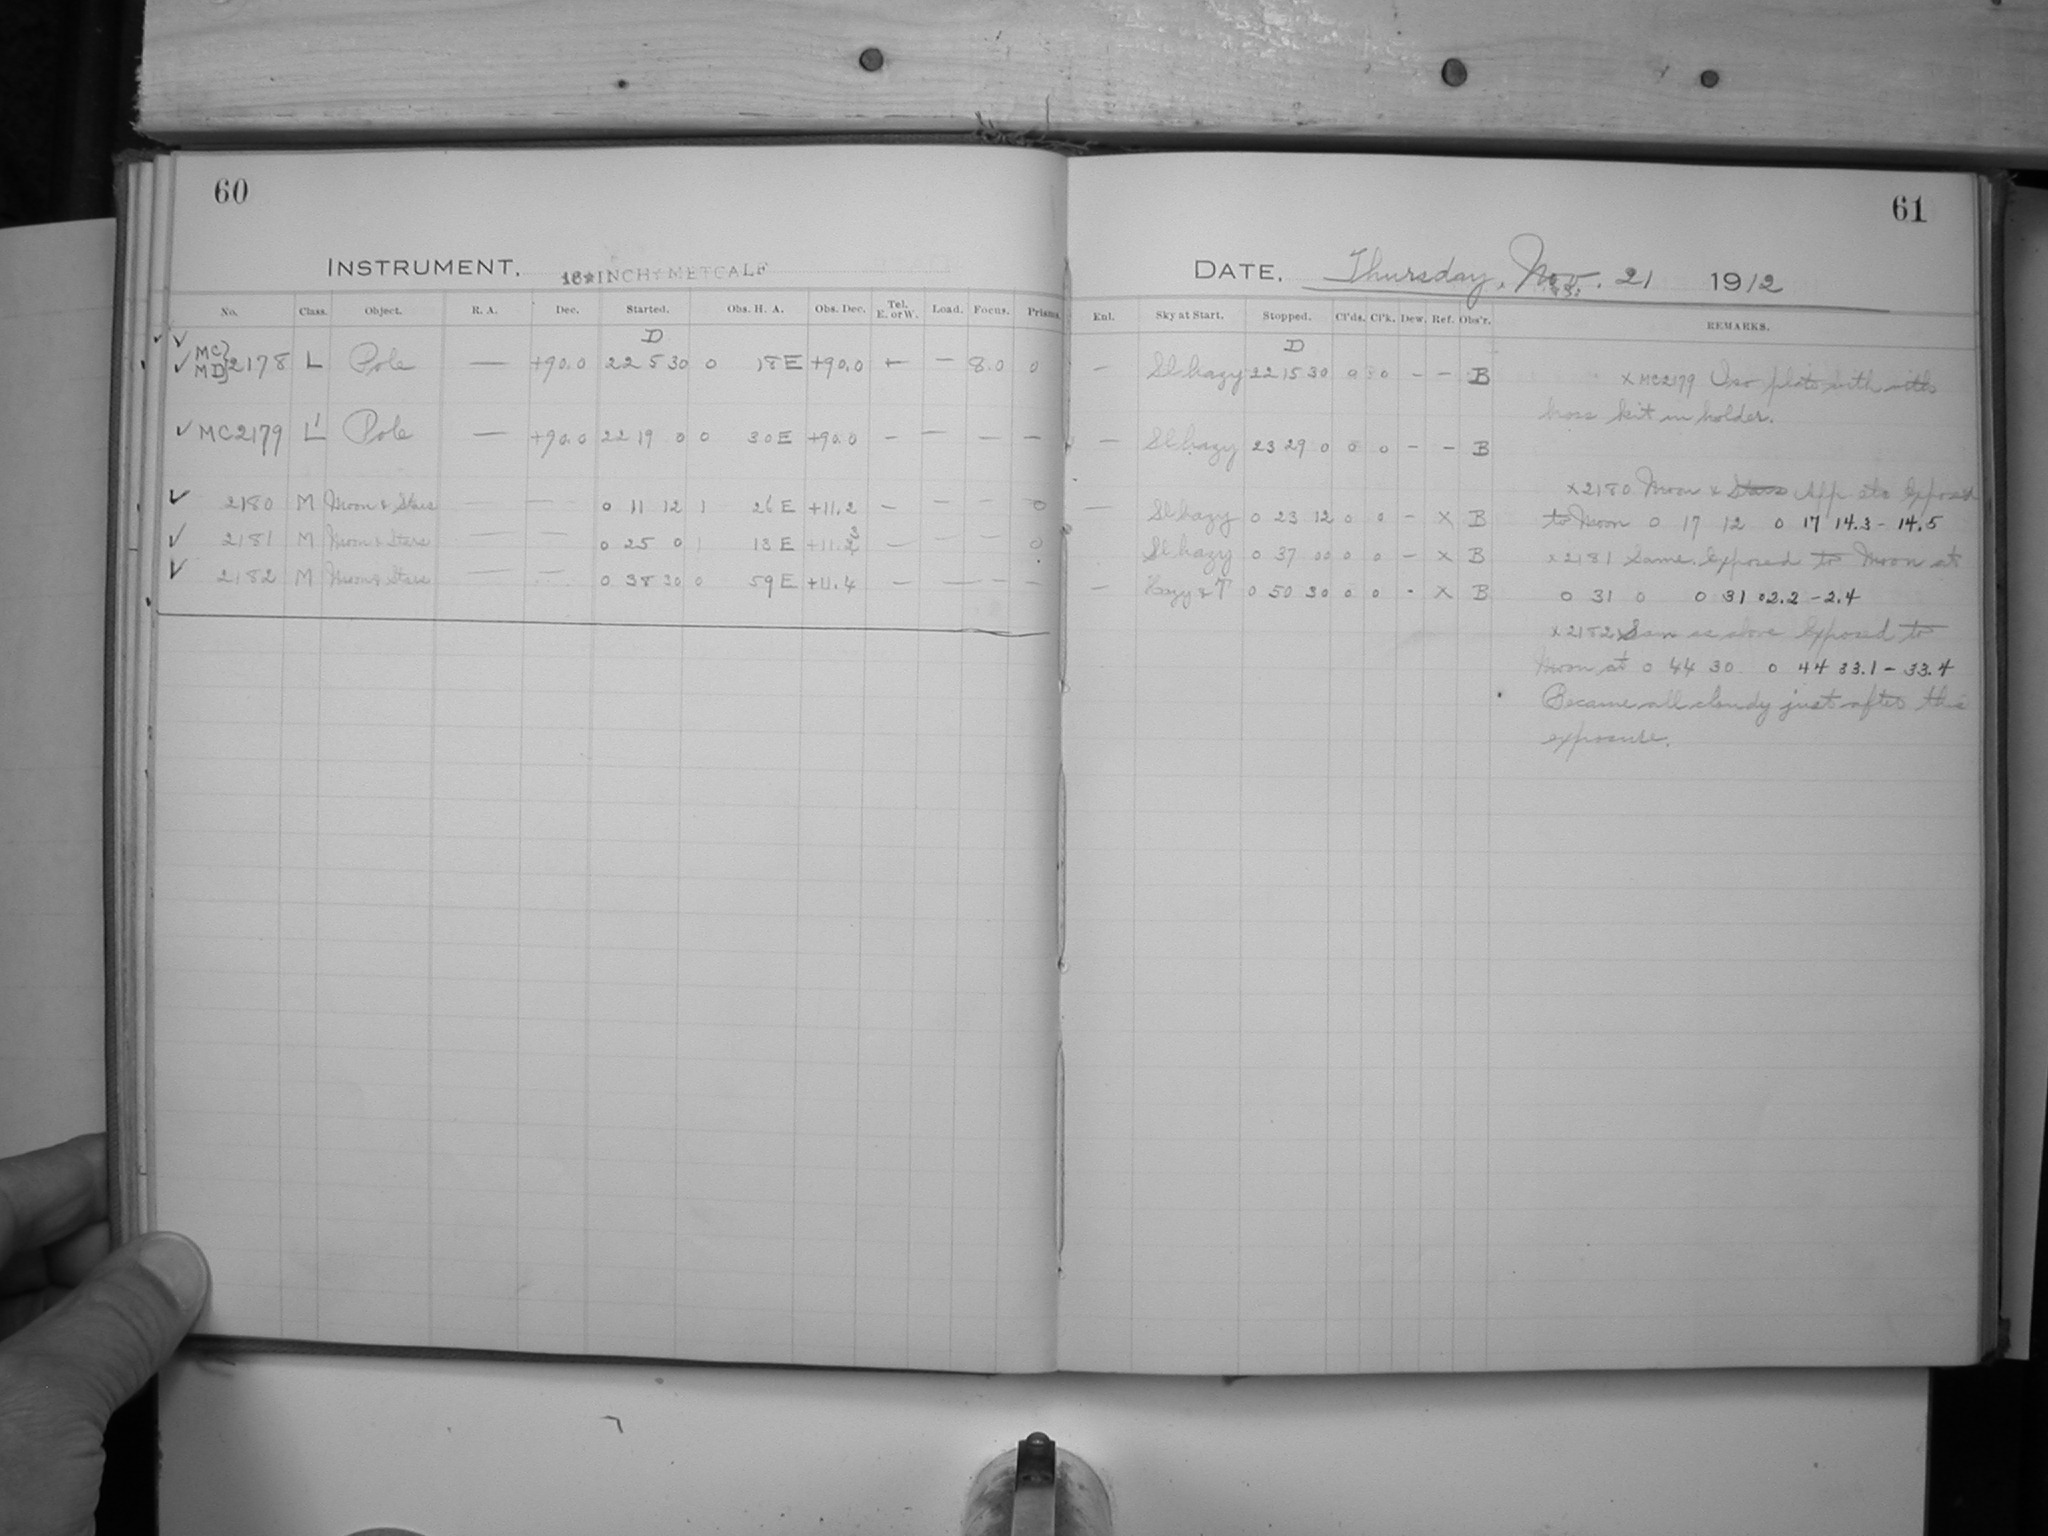 60
INSTRUMENT. 16-INCH METCALF
No. Class. Object. R. A. Dec. Started. Obs. H. A. Obs. Dec. Tel. E. or W. Load. Focus. Prisms.
D
MC MD} 2178 L Pole — +90.0 22 5 30 0 18 E +90.0 — — 8.0 0
MC2179 L' Pole — +90.0 22 19 0 0 30 E +90.0 — — — —
2180 M Moon & Stars — — 0 11 12 1 26 E +11.2 — — — 0
2181 M Moon & Stars — — 0 25 0 1 13 E +11.3 — — — 0
2182 M Moon & Stars — — 0 38 30 0 59 E +11.4 — — — —
61
DATE. Thursday, Nov. 21 1912
Enl. Sky at Start. Stopped. Cl'ds. Cl'k. Dew. Ref. Obs'r. REMARKS.
D
— Sl hazy 22 15 30 0 0 – – B
— Sl hazy 23 29 0 0 0 – – B
— Sl hazy 0 23 12 0 0 – X B
Sl hazy 0 37 00 0 0 – X B
— Hazy & T 0 50 30 0 0 - X B
X MC2179 Iso plate with with
brass kit in holder.
X 2180 Moon & Stars exposed
to Moon 0 17 12 0 17 14.3 – 14.5
X 2181 Same. Exposed to Moon at
0 31 0 0 31 02.2 – 2.4
X 2182 Sam as above Exposed to
Moon at 0 44 30 0 44 33.1 – 33.4
Became all cloudy just after this
exposure.